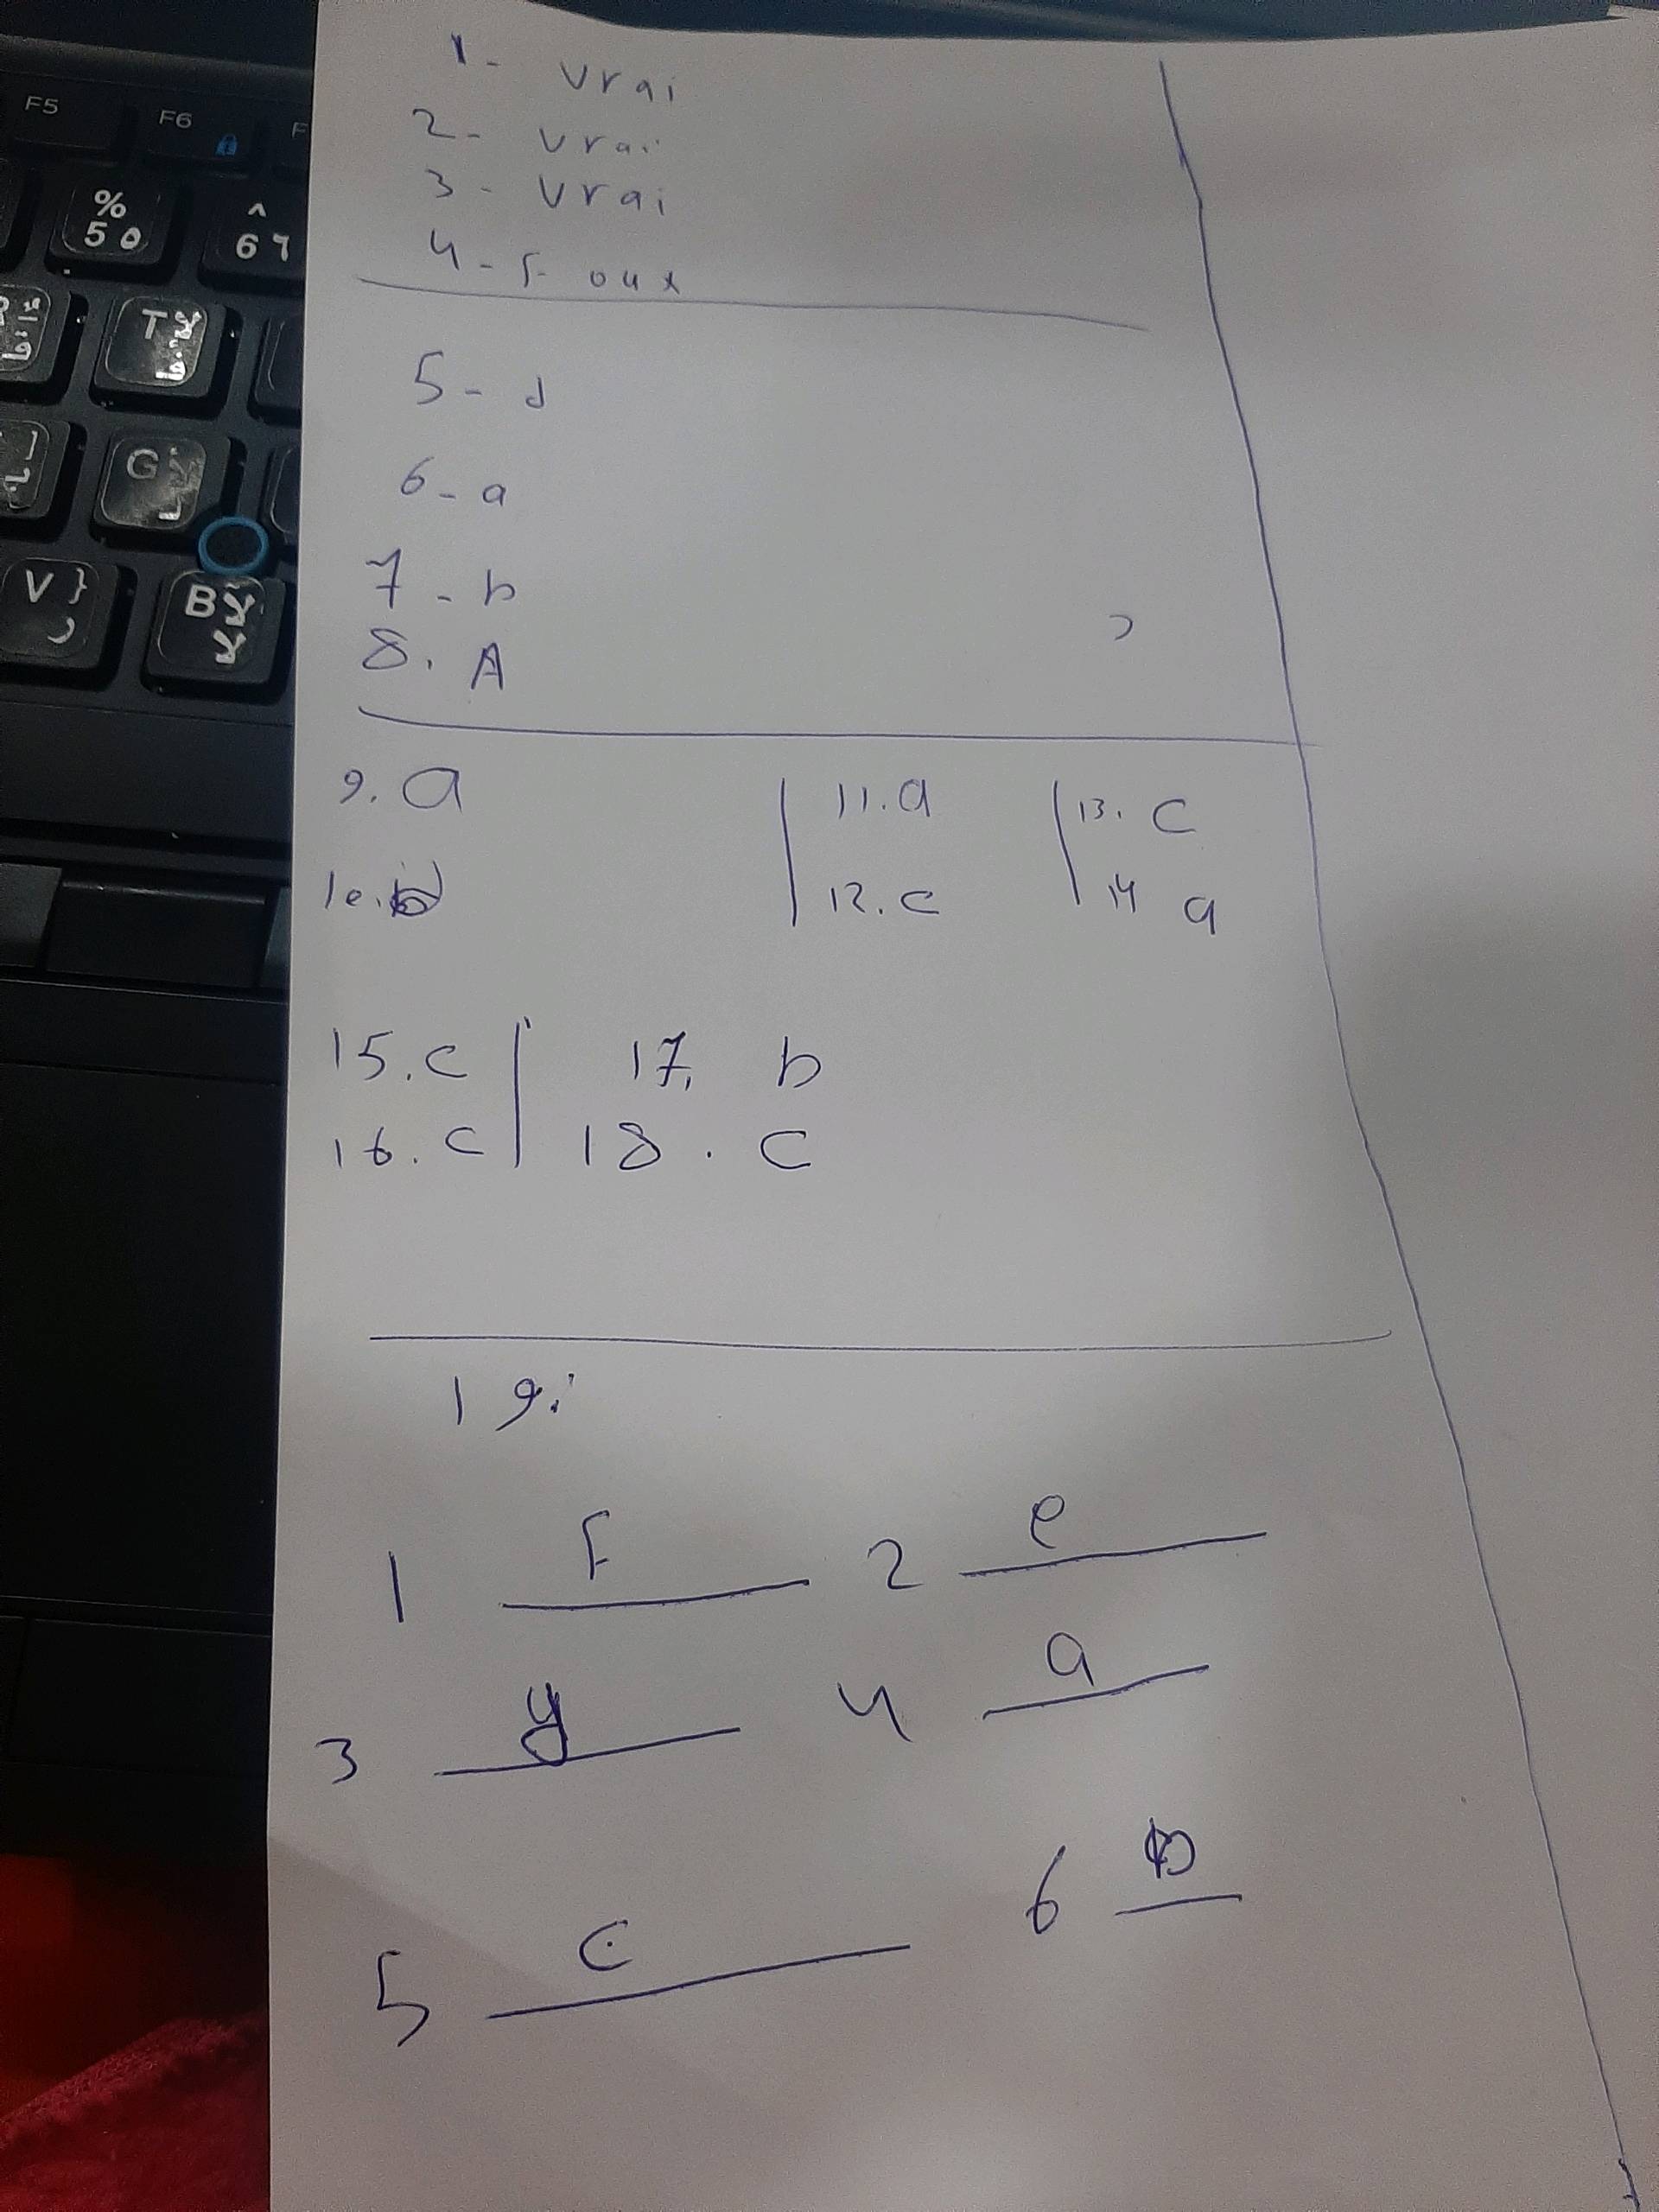 1- vrai
2- vrai
3- vrai
4- Foux
5- d
6- a
7- b
8. A
9. a
11. a
13. c
10.
12. c
14 a
15. c
17. b
16. c
18. c
19:
1 F 2 e
3 4 a
5 c 6
F5
F6
F
% 5 ٥
^ 6 ٦
T
G
V }
B